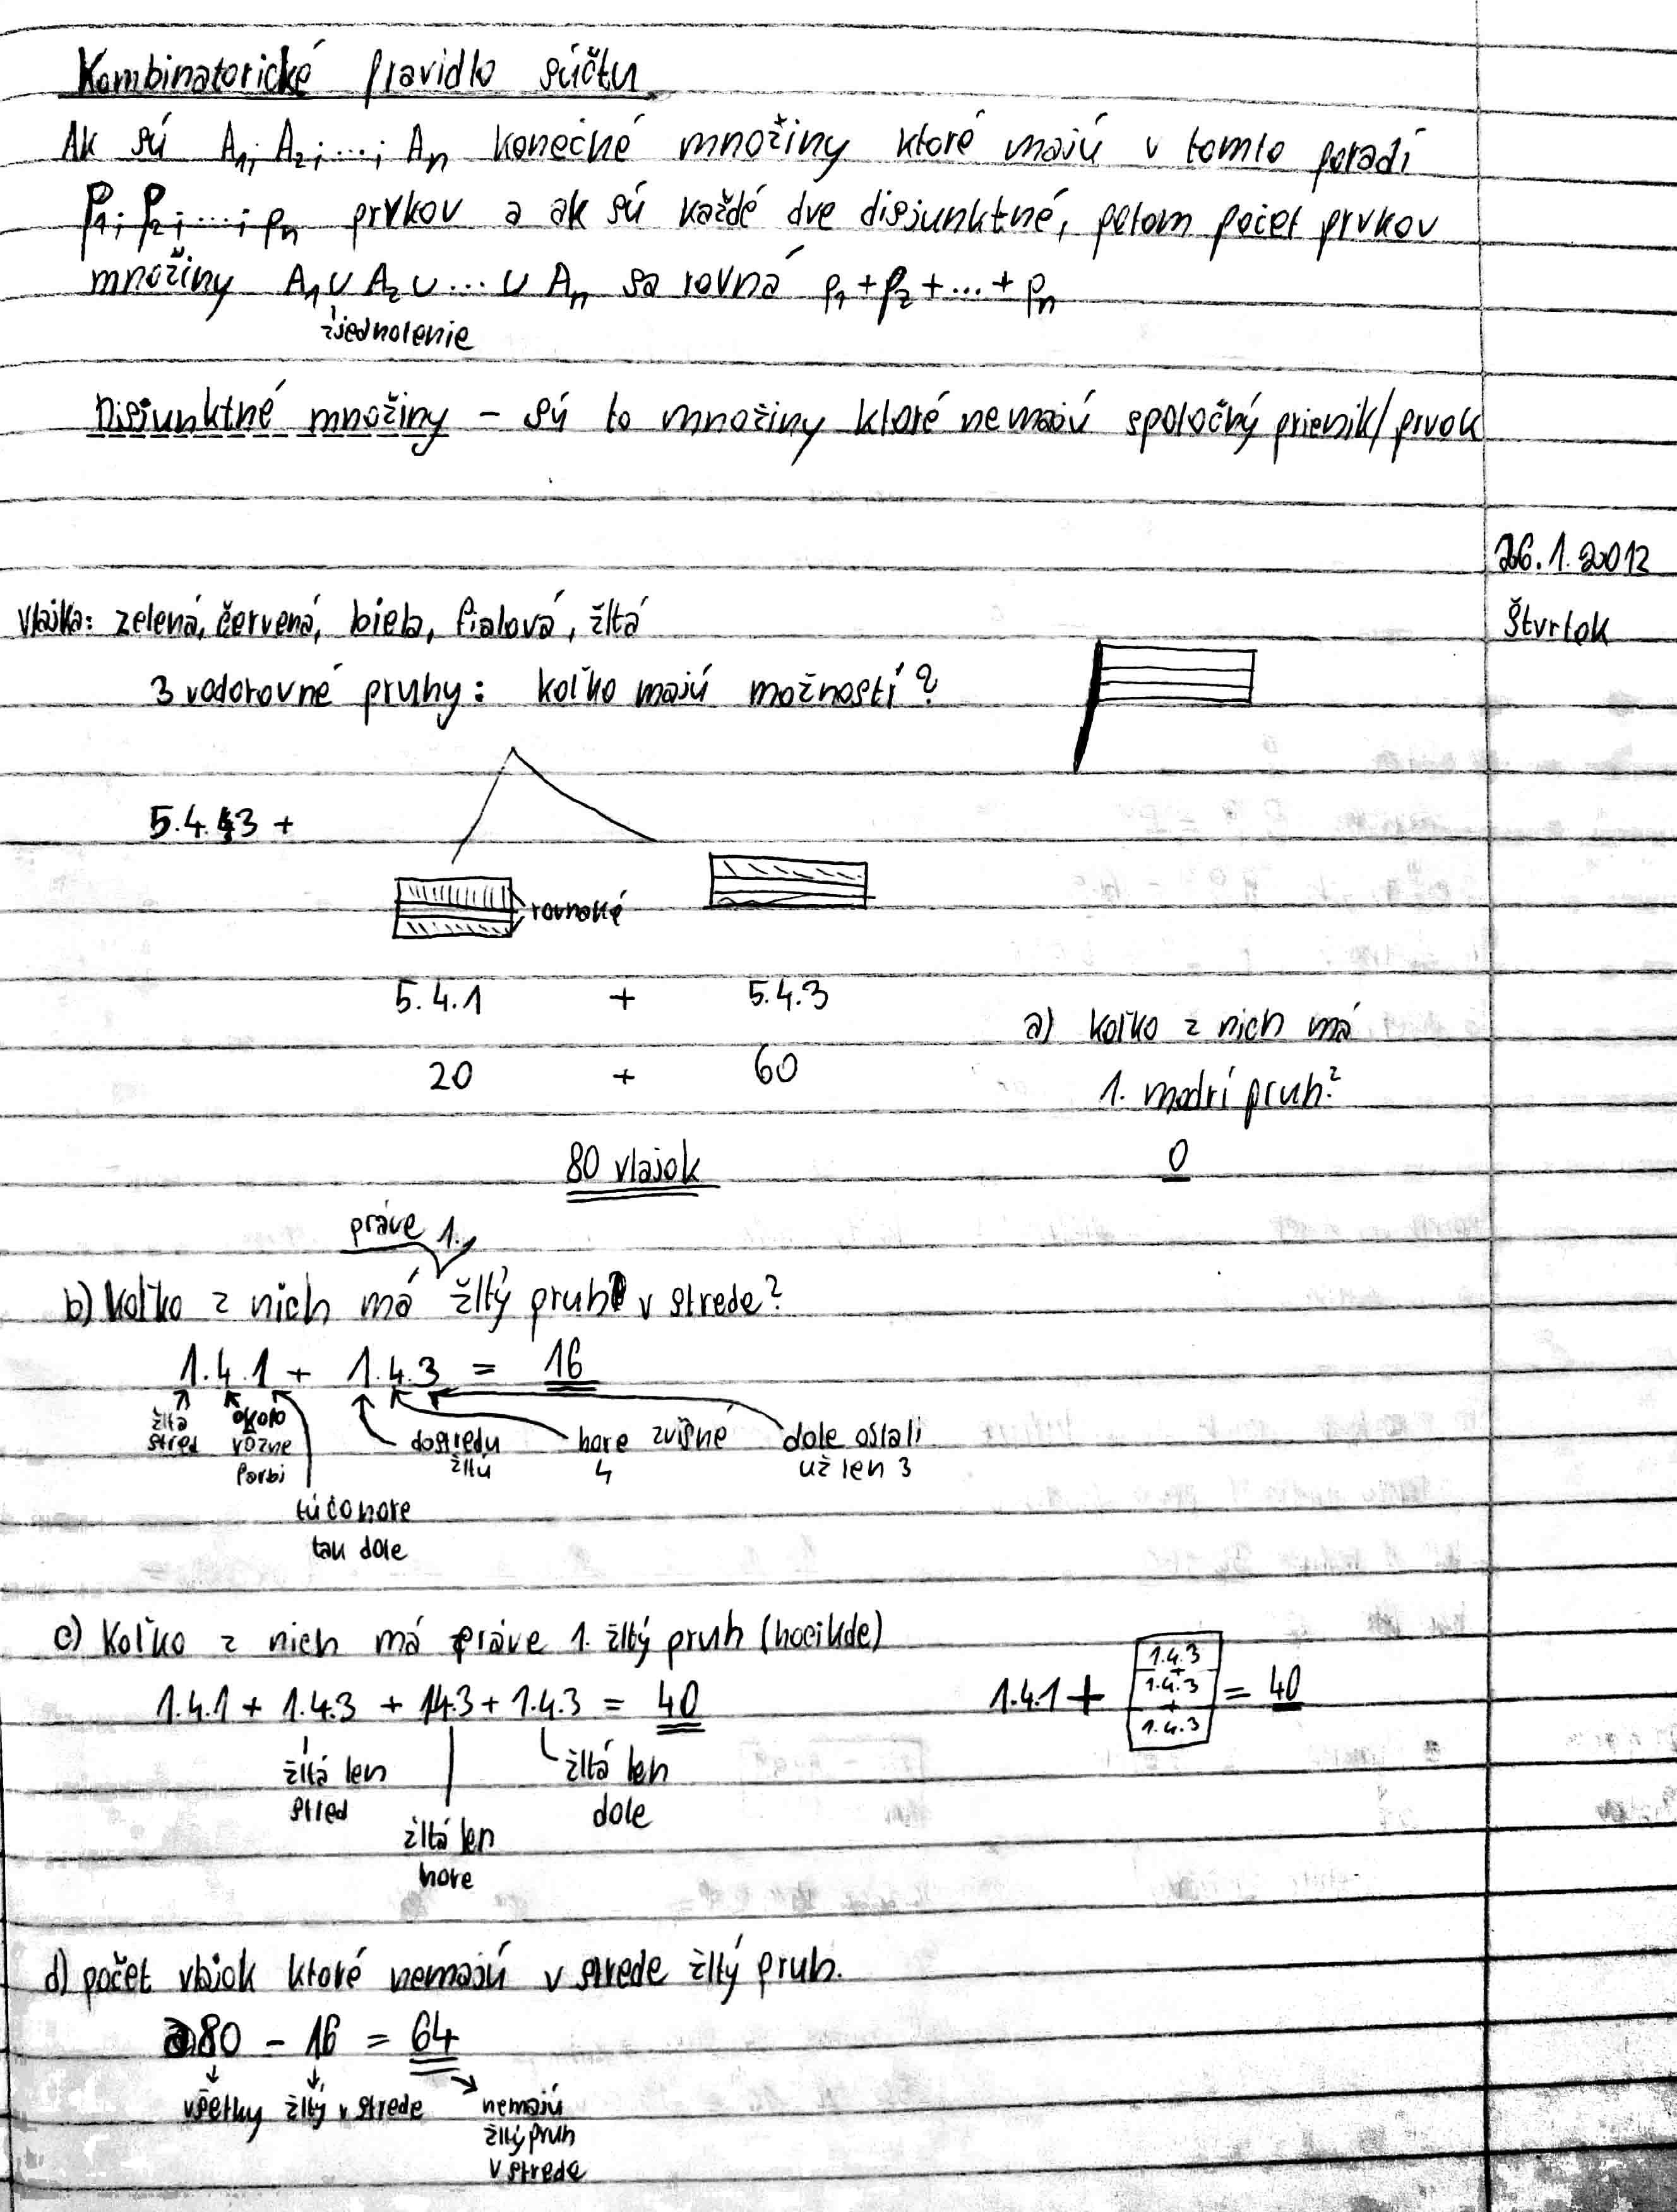 Kombinatorické pravidlo súčtu
Ak sú A1; A2; ...; An konečné množiny ktoré majú v tomto poradí
p1; p2; ...; pn prvkov a ak sú každé dve disjunktné, potom počet prvkov
množiny A1 ∪ A2 ∪ ... ∪ An sa rovná p1 + p2 + ... + pn
zjednotenie
Disjunktné množiny - sú to množiny ktoré nemajú spoločný prienik/prvok
26.1.2012
Štvrtok
Vlajka: zelená, červená, biela, fialová, žltá
3 vodorovné pruhy: koľko majú možností?
5.4.3 +
rovnaké
5.4.1 + 5.4.3
20 + 60
80 vlajok
a) koľko z nich má
1. modrí pruh?
0
práve 1.
b) Koľko z nich má žltý pruh v strede?
1.4.1 + 1.4.3 = 16
žltá stred
okolo rôzne farbi
tú čo hore
tak dole
dostredu žltú
hore zvišné 4
dole ostali už len 3
c) Koľko z nich má práve 1. žltý pruh (hocikde)
1.4.1 + 1.4.3 + 1.4.3 + 1.4.3 = 40
žltá len stred
žltá len hore
žltá len dole
1.4.3
+
1.4.1 + 1.4.3 = 40
+
1.4.3
d) počet vlajok ktoré nemajú v strede žltý pruh.
80 - 16 = 64
všetky žltý v strede
nemajú
žltý pruh
v strede